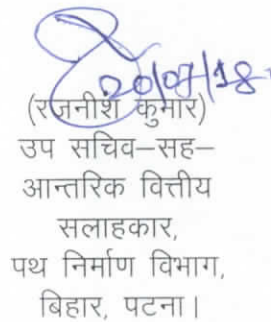 20/07/18
(रजनीश कुमार)
उप सचिव–सह–
आन्तरिक वित्तीय
सलाहकार,
पथ निर्माण विभाग,
बिहार, पटना।